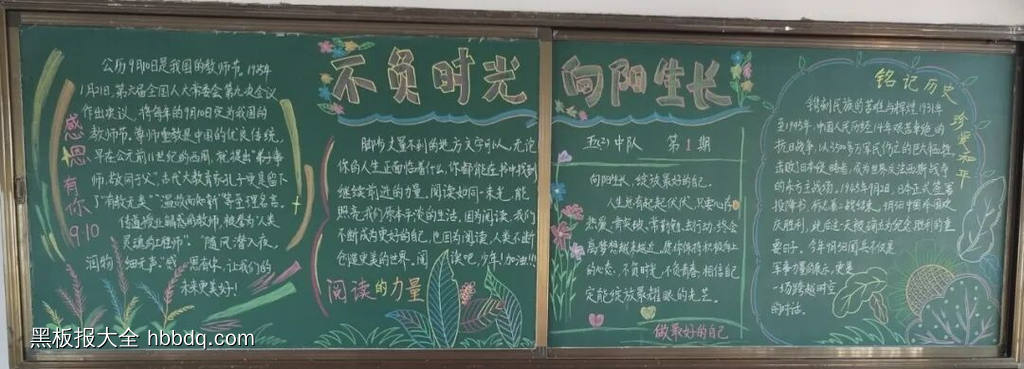 不负时光 向阳生长
感恩有你 9.10
公历9月10日是我国的教师节，1985年
1月21日，第六届全国人大常委会第九次会议
作出决议，将每年的9月10日定为我国的
教师节。尊师重教是中国的优良传统，
早在公元前11世纪的西周，就提出"弟子事
师，敬同于父"。古代大教育家孔子更是留下
了"有教无类""温故而知新"等至理名言。
传道授业解惑的教师，被誉为"人类
灵魂的工程师"，"随风潜入夜，
润物细无声"感恩有你，让我们的
未来更美好！
脚步丈量不到的地方文字可以，无论
你的人生正面临着什么，你都能在书中找到
继续前进的力量。阅读如同一束光，能
照亮我们原本平淡的生活，因为阅读，我们
不断成为更好的自己，也因为阅读，人类不断
创造更美的世界。阅读吧，少年！加油!!!
阅读的力量
五(2)中队 第1期
向阳生长，绽放最好的自己。
人生总有起起伏伏，只要心存
热爱，常突破，常新生，去行动，终会
离梦想越来越近，愿你保持积极向上
的心态，不负时光，不负青春，相信自己
定能绽放最耀眼的光芒。
做最好的自己
铭记历史
珍爱和平
铭刻民族的苦难与辉煌，1931年
至1945年，中国人民历经14年艰苦卓绝的
抗日战争，以3500多万军民伤亡的巨大牺牲
击败日本侵略者，成为世界反法西斯战争
的东方主战场。1945年9月2日，日本正式签署
投降书，标志着二战结束，